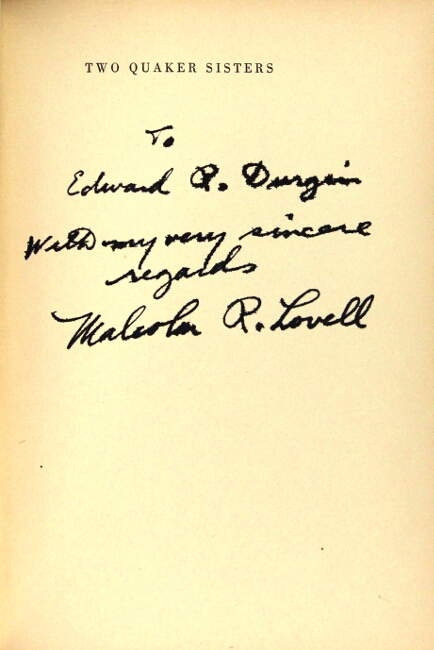 TWO QUAKER SISTERS
To
Edward R. Durgin
With my very sincere
regards
Malcolm R. Lovell